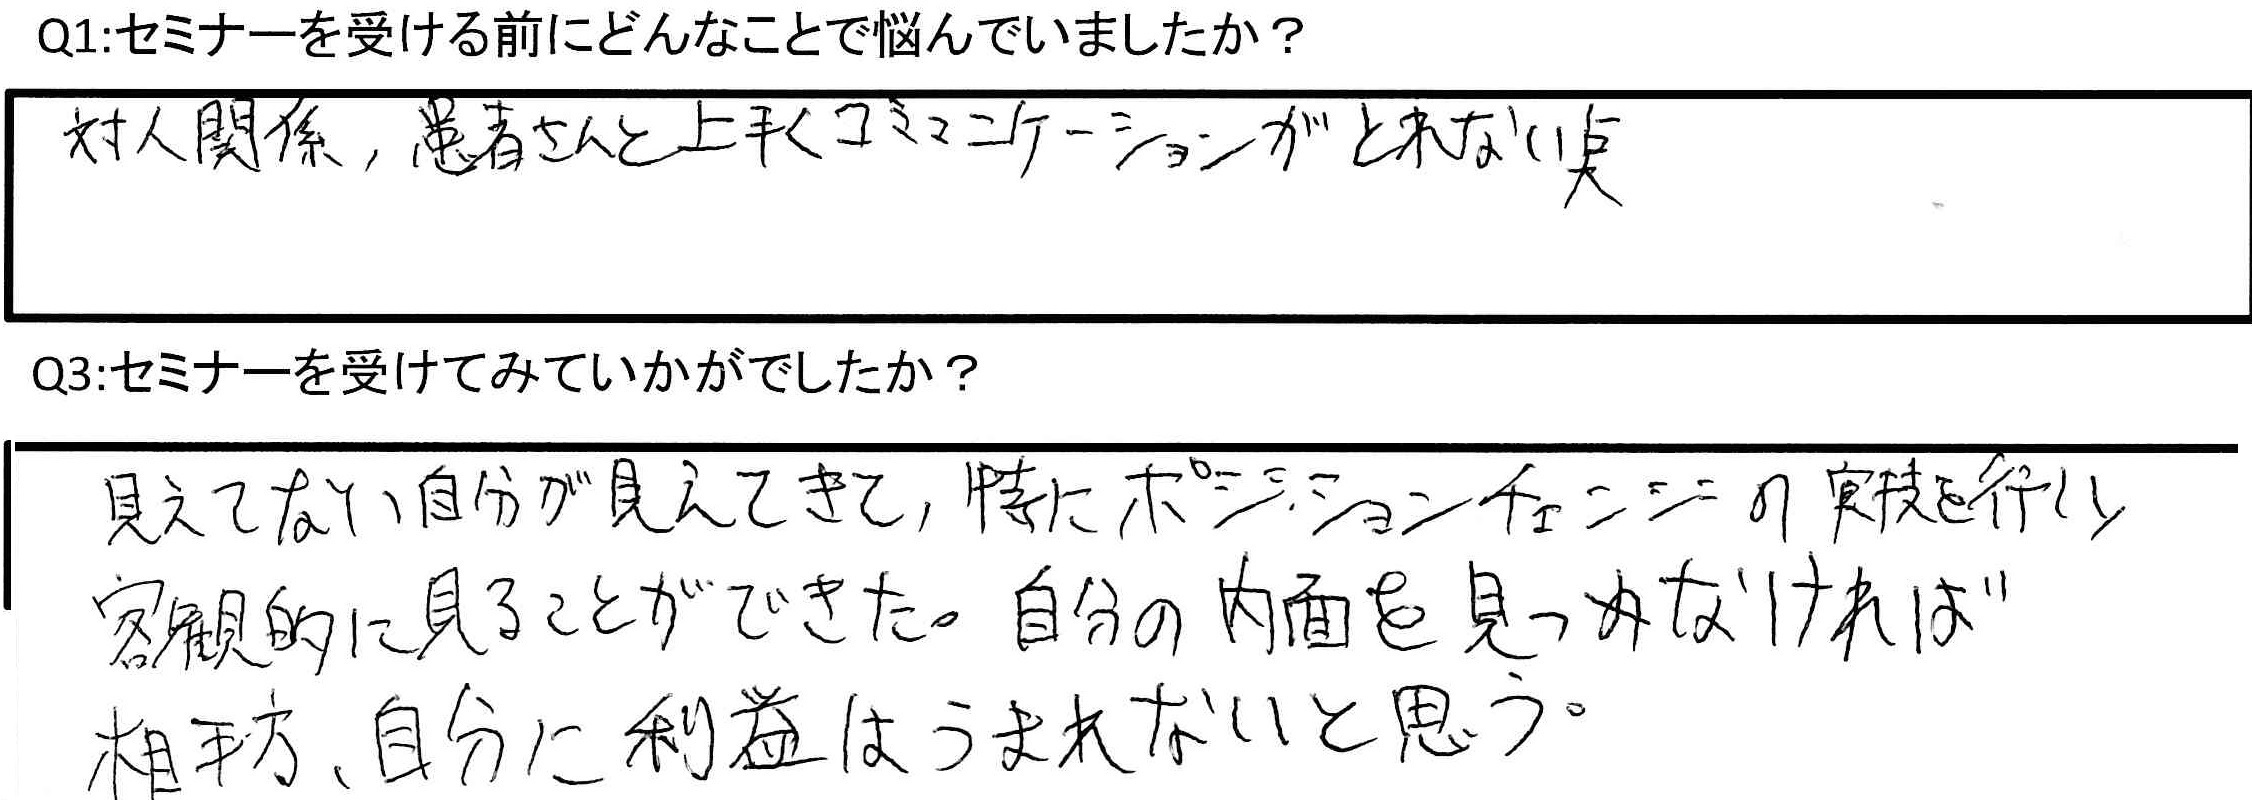 Q1:セミナーを受ける前にどんなことで悩んでいましたか？
対人関係，患者さんと上手くコミュニケーションがとれない点
Q3:セミナーを受けてみていかがでしたか？
見えてない自分が見えてきて，特にポジションチェンジの実技を行い
客観的に見ることができた。自分の内面を見つめなければ
相手方、自分に利益はうまれないと思う。